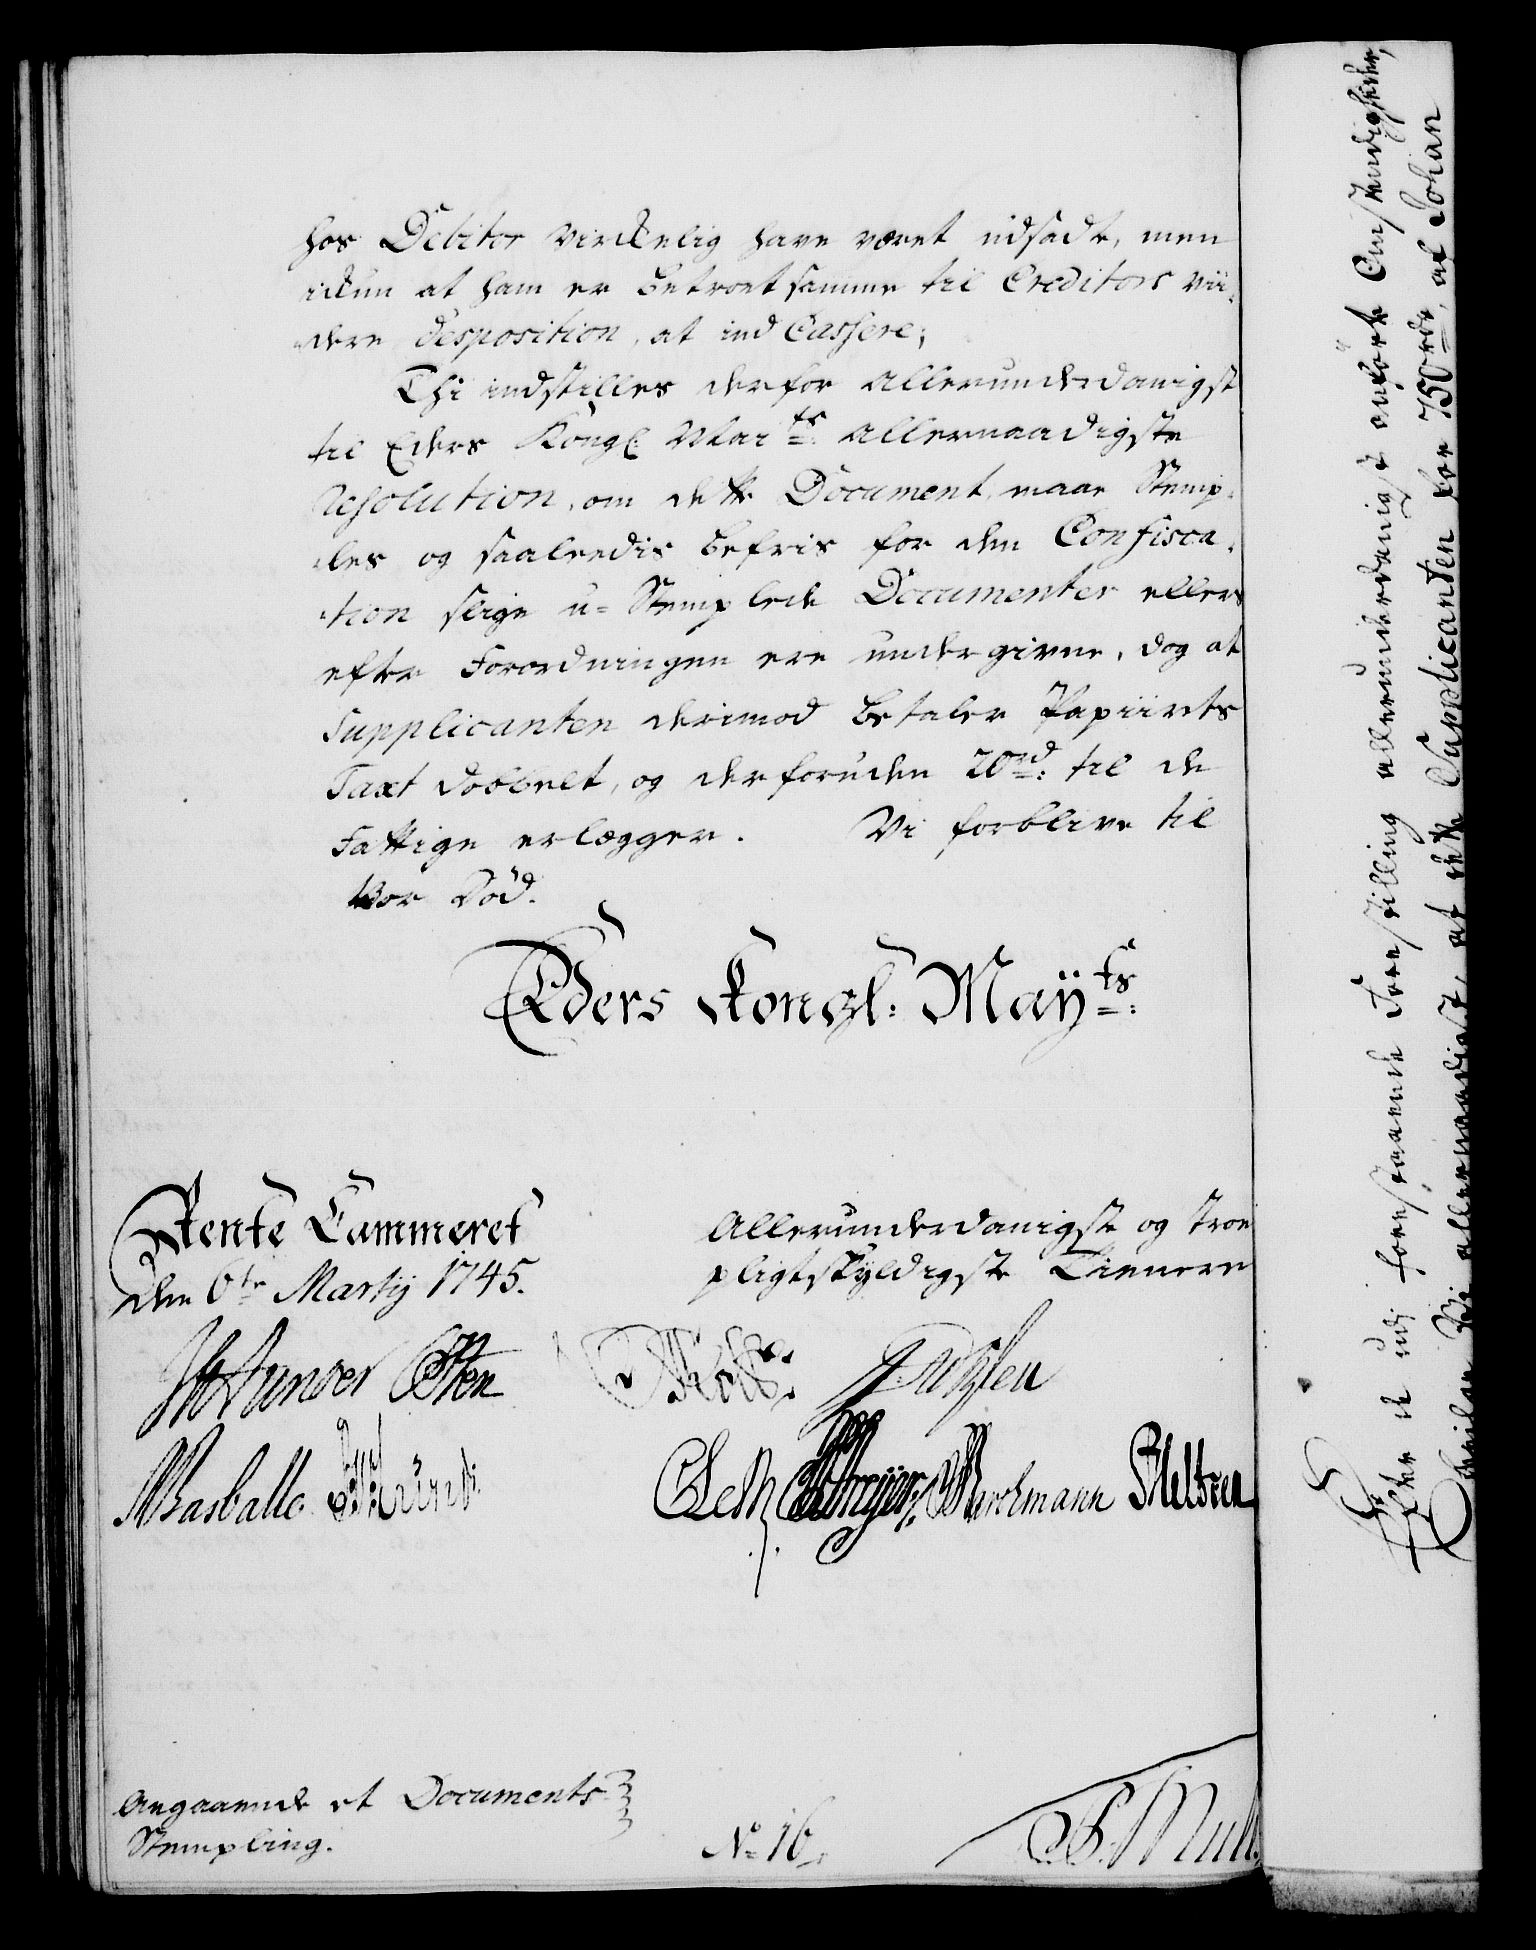 hos Debitor virkelig have været udsadt, men
ickun at ham er betroet samme til Creditors vii-
dere desposition, at ind Cassere;
Thi indstilles derfor allerunderdanigst
til Eders Kongl: Mai.ts allernaadigste
resolution, om dette Document maae Stemp-
les og saaledis befris for den Confisca-
tion slige u-Stemplede Documenter ellers
efter Forordningen ere undergivne, dog at
Supplicanten derimod betaler Papiirets
Taxt dobbelt, og derforuden 20rd: til de
Fattige erlægger. Vi forblive til
Vor Død.
Eders Kongl: Mayts:
Rente Cammeret
den 6te Martij 1745.
Allerunderdanigste og troe
pligtskyldigste Tienere
Angaaende et Documents
Stempling.
No 16
Efter de udj forestaaende Forestilling allerunderdanigst anførte Omstændigheder,
Ville Vi allernaadigst, at dette Supplicanten for 750rd, af Johan